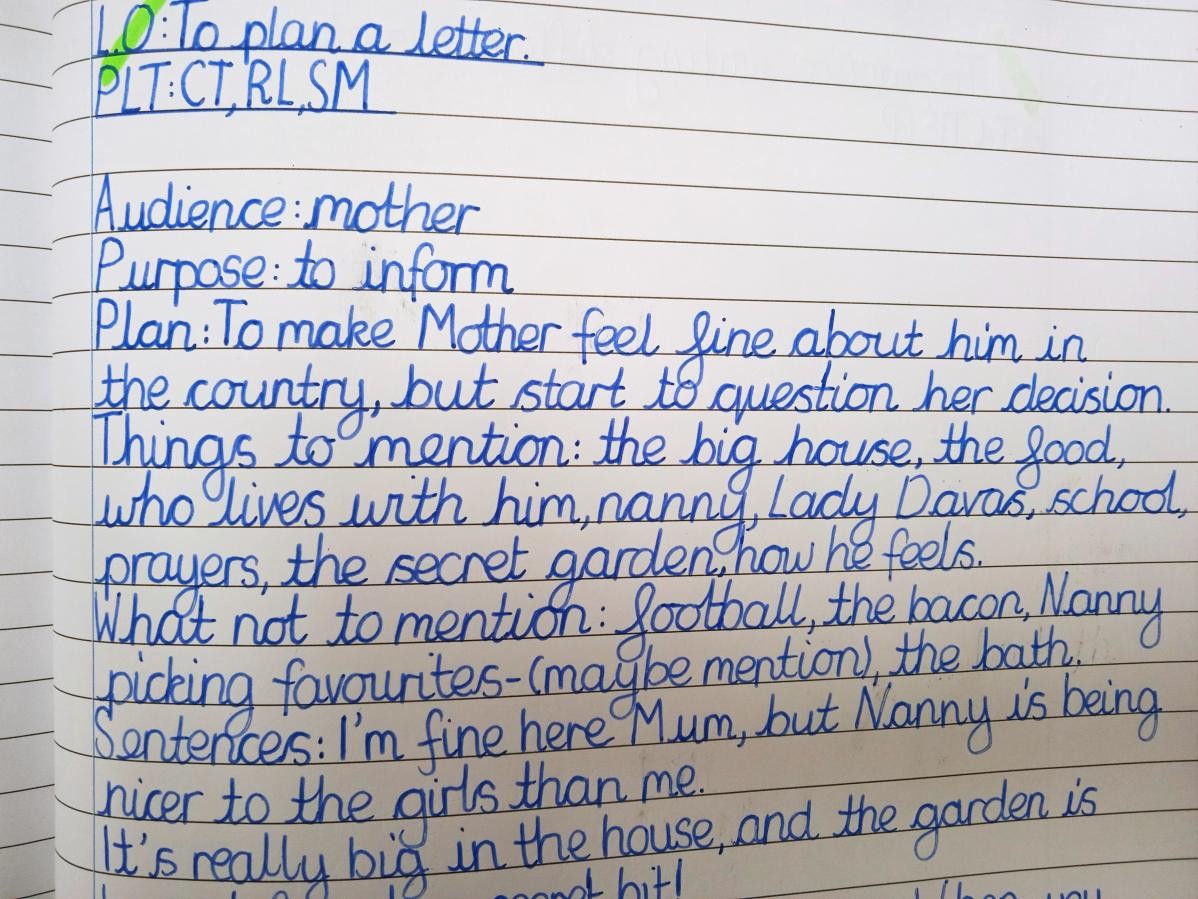 L.O:To plan a letter.
PLT:CT,RL,SM
Audience:mother
Purpose: to inform
Plan:To make Mother feel fine about him in
the country, but start to question her decision.
Things to mention: the big house, the food,
who lives with him, nanny, Lady Davas, school,
prayers, the secret garden, how he feels.
What not to mention: football, the bacon, Nanny
picking favourites-(maybe mention), the bath.
Sentences: I'm fine here Mum, but Nanny is being
nicer to the girls than me.
It's really big in the house, and the garden is
secret bit! When you